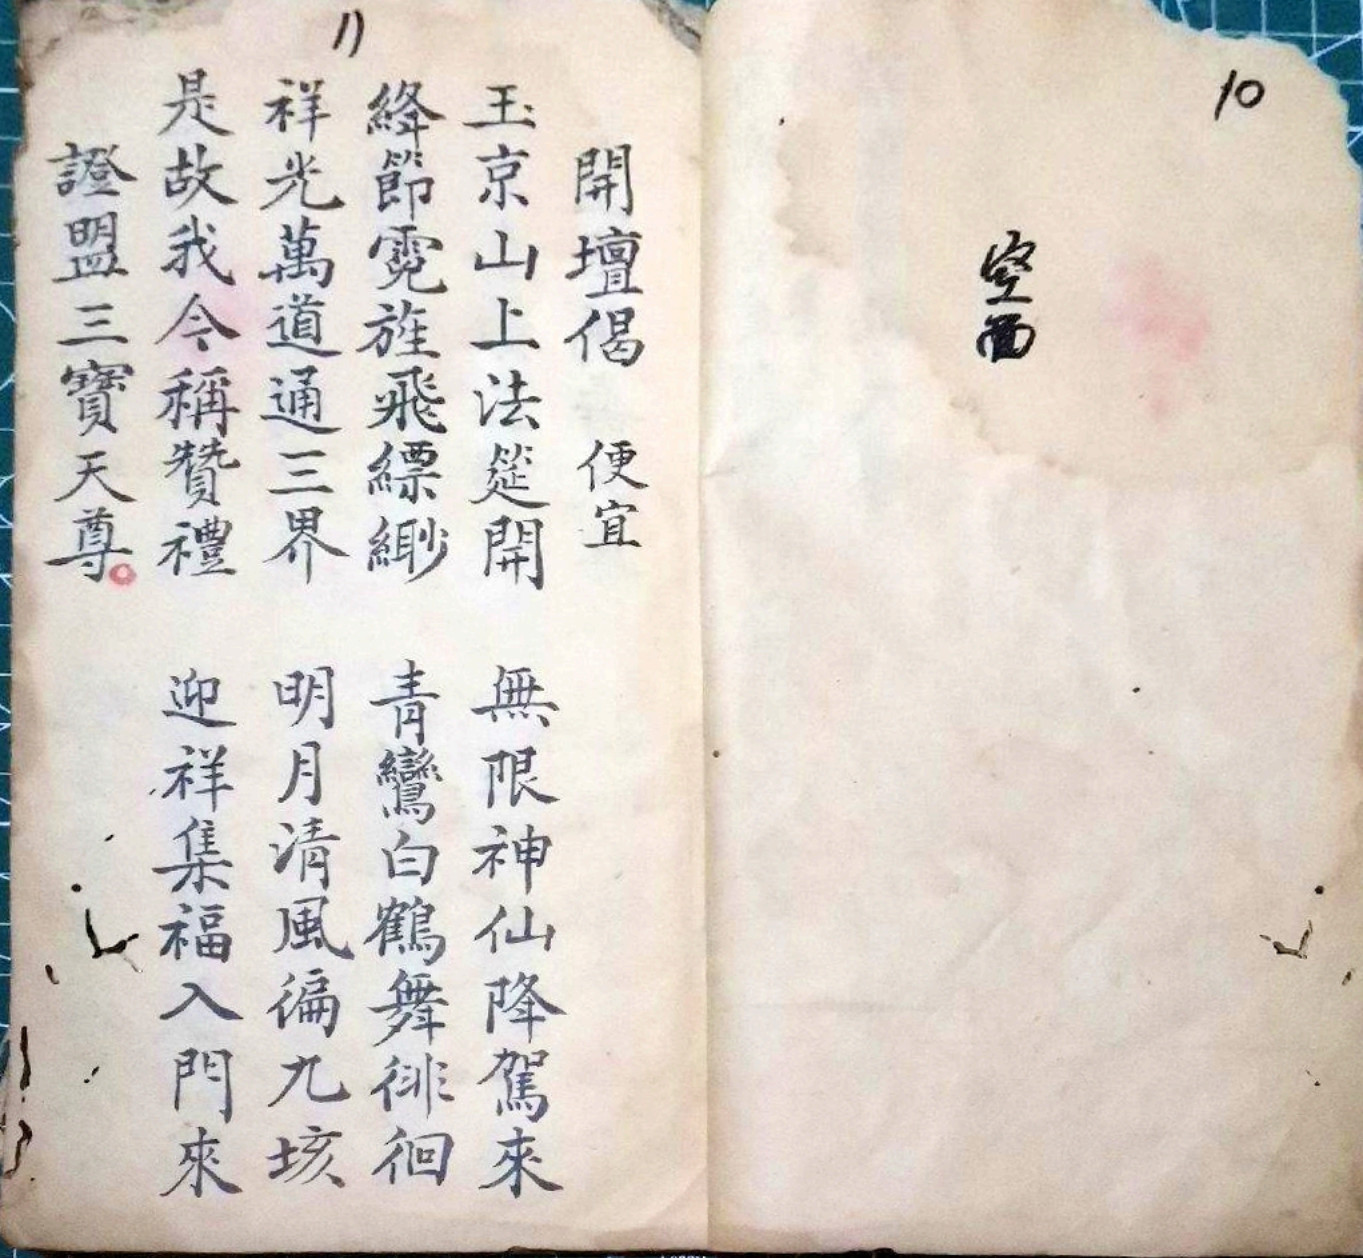 10
空面
11
開壇偈 便宜
玉京山上法筵開 無限神仙降駕來
絳節霓旌飛縹緲 青鸞白鶴舞徘徊
祥光萬道通三界 明月清風徧九垓
是故我今稱贊禮 迎祥集福入門來
證盟三寶天尊